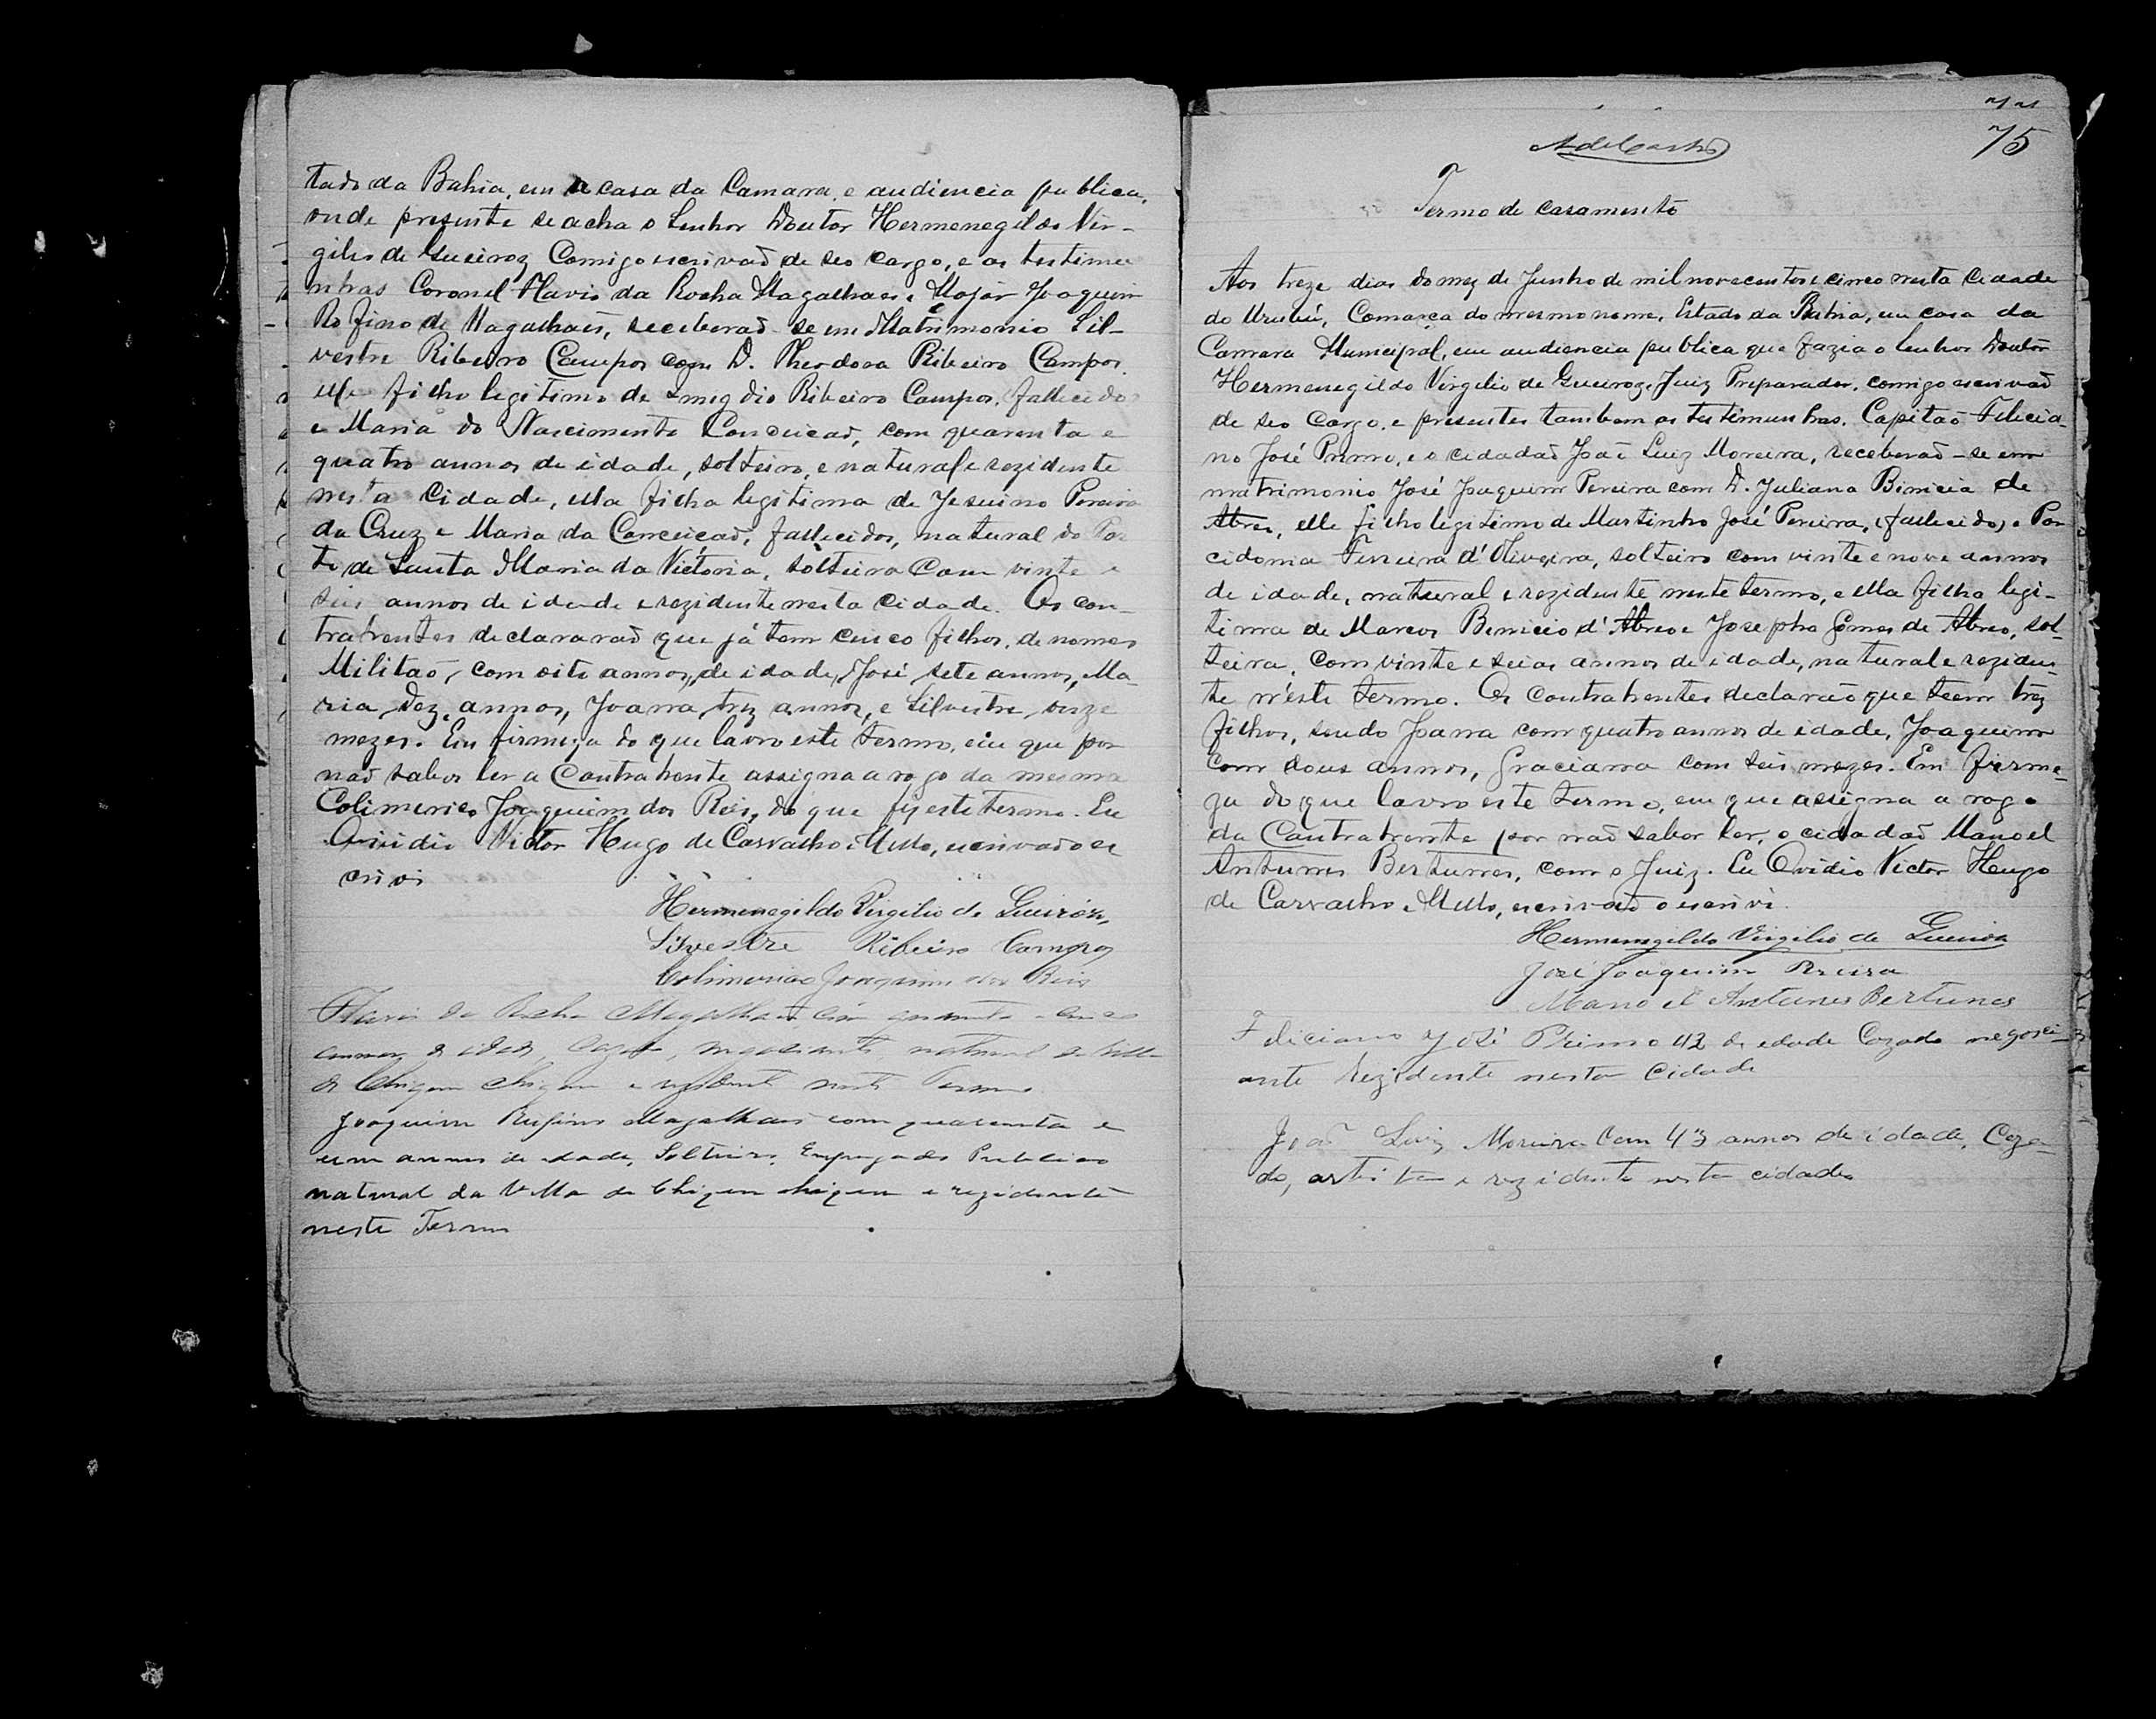 tado da Bahia, em a casa da Camara, e audiencia publica,
onde presente se acha o Senhor Doutor Hermenegildo Vir-
gilio de Gueiroz Comigo escrivaõ de seo cargo, e as testimu
nhas Coronel Flavio da Rocha Magalhaes e Major Joaquim
Rofino de Magalhaẽs, receberaõ-se em Matrimonio Sil-
vestre Ribeiro Campos com D. Theodora Ribeiro Campos.
elle filho legitimo de Emygdio Ribeiro Campos, fallecido
e Maria do Nascimento Conceicaõ, com quarenta e
quatro annos de idade, solteiro, e natural e rezidente
nesta Cidade, ella filha legitima de Jesuino Pereira
da Cruz e Maria da Conceicaõ, fallecidos, natural do Por
to de Santa Maria da Victoria, solteira com vinte e
seis annos de idade e rezidente nesta cidade. Os con-
trahentes declararaõ que já tem cinco filhos, de nomes
Militaõ, com oito annos, de idade, José, sete annos, Ma-
ria, dez annos, Joana, trez annos, e Silvestre, onze
mezes. Em firmeza do que lavro este termo, em que por
naõ saber ler a Contrahente assigna a rogo da mesma
Colimerio Joaquim dos Reis, do que fiz este termo. Eu
Ovidio Victor Hugo de Carvalho e Mello, escrivaõ o es
crivi
Hermenegildo Virgilio de Gueiroz,
Silvestre Ribeiro Campos
Colimerio Joaquim dos Reis
Flavio da Rocha Magalhaes com quarenta e cinco
annos de idade, Cazado, negociante, natural da Villa
de Chique Chique e rezidente neste Termo
Joaquim Rufino Magalhaes com quarenta e
um annos de idade, Solteiro, Empregado Publico
natural da Villa de Chique chique e rezidente
neste Termo
75
A de Castro
Termo de casamento
Aos treze dias do mez de Junho de mil novecentos e cinco nesta Cidade
do Urubú, Comarca do mesmo nome, Estado da Bahia, em casa da
Camara Municipal, em audiencia publica que fazia o Senhor Doutor
Hermenegildo Virgilio de Gueiroz, Juiz Preparador, comigo escrivaõ
de seo cargo, e presentes tambem as testimunhas, Capitaõ Felicia-
no José Primo, e o cidadaõ Joaõ Luiz Moreira, receberaõ-se em
matrimonio José Joaquim Pereira com D. Juliana Binicia de
Abreo, elle filho legitimo de Martinho José Pereira, (fallecido) e Por
cidonia Ferreira d'Oliveira, solteiro com vinte e nove annos
de idade, natural e rezidente neste termo, e ella filha legi-
tima de Marcos Binicio d'Abreo e Josepha Gomes de Abreo, sol-
teira, com vinte e seias annos de idade, natural e reziden-
te n'este termo. Os contrahentes declaraõ que teem trez
filhos, sendo Joana com quatro annos de idade, Joaquim
com dous annos, Graciana com seis mezes. Em firme-
za do que lavro este termo, em que assigna a rogo
da Contrahente por naõ saber ler, o cidadaõ Manoel
Antunes Bertunes, com o Juiz. Eu Ovidio Victor Hugo
de Carvalho e Mello, escrivaõ o escrivi.
Hermenegildo Virgilio de Gueiroz
José Joaquim Pereira
Manoel Antunes Bertunes
Feliciano José Primo 42 de edade Cazado negoci-
ante Rezidente nesta Cidade
Joaõ Luiz Moreira com 43 annos de idade, Caza-
do, artista e rezidente nesta cidade